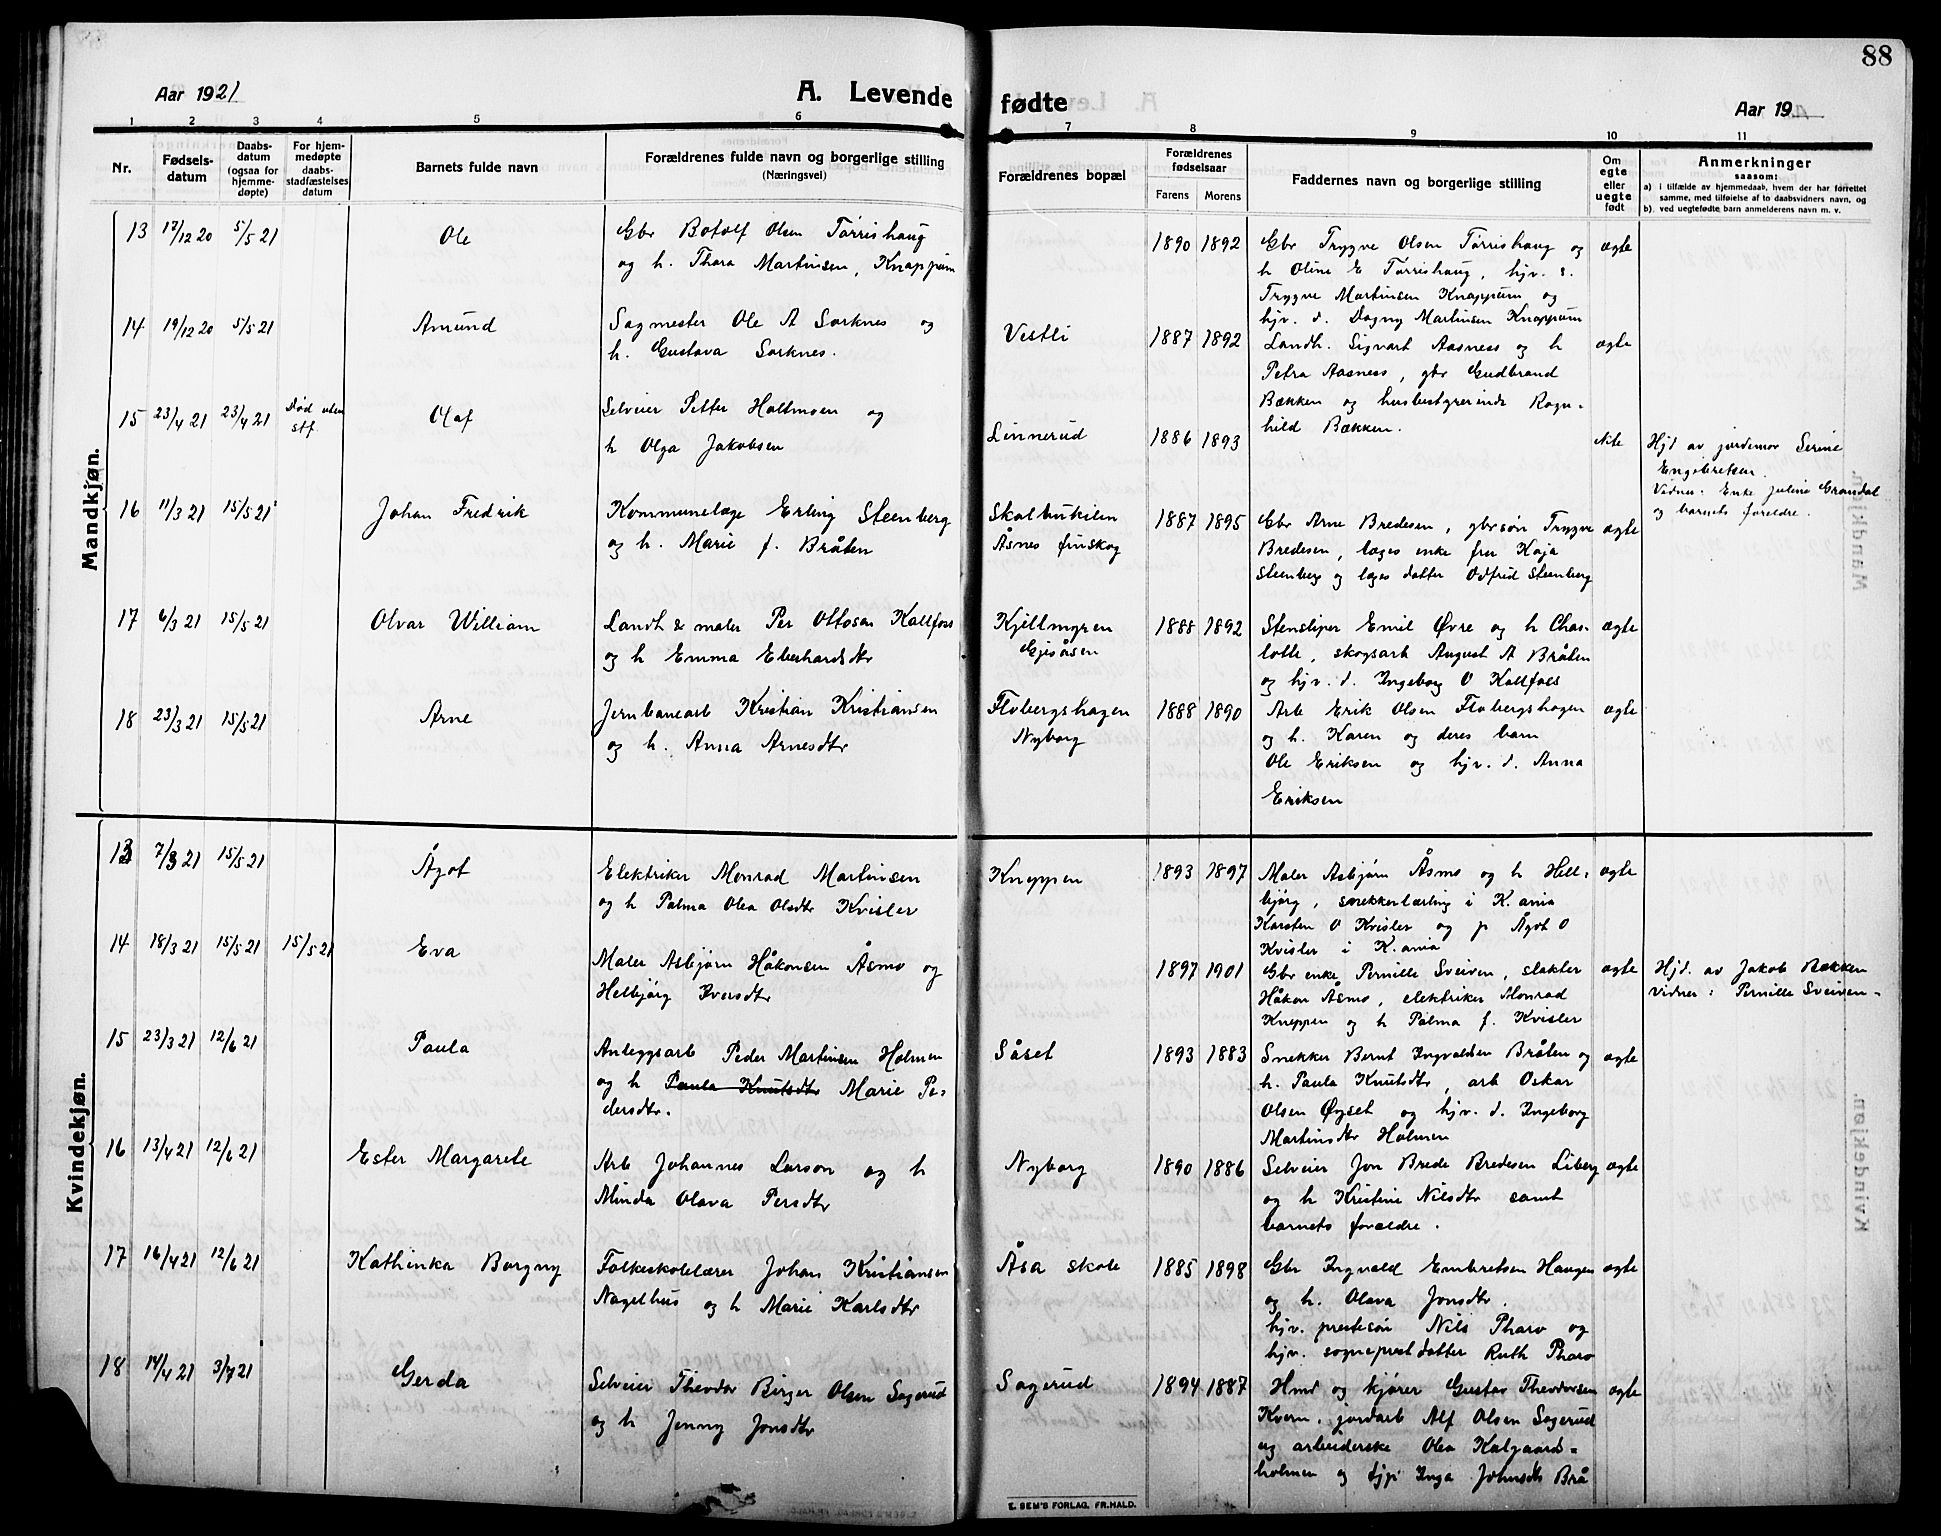 88
Aar 1921
A. Levende fødte
Aar 19
1 2 3 4 5 6 7 8 9 10 11
Nr.
Fødsels-
datum
Daabs-
datum
(ogsaa for
hjemme-
døpte)
For hjem-
medøpte
daabs-
stadfæstelses
datum
Barnets fulde navn
Forældrenes fulde navn og borgerlige stilling
(Næringsvei)
Forældrenes bopæl
Forældrenes
fødselsaar
Farens Morens
Faddernes navn og borgerlige stilling
Om
egte
eller
uegte
født
Anmerkninger
saasom:
a) i tilfælde av hjemmedaab, hvem der har forrettet
samme, med tilføielse af to daabsvidners navn, og
b) ved uegtefødte barn anmelderens navn m. v.
Mandkjøn.
13 17/12 20 5/5 21 Ole
Gbr Botolf Olsen Tørrishaug
og h. Thora Martinsen, Knappum
1890 1892
Gbr Trygve Olsen Tørrishaug og
h Oline E Tørrishaug, hjv. s.
Trygve Martinsen Knappum og
hjv. d. Dagny Martinsen Knappum
ægte
14 19/12 20 5/5 21 Amund
Sagmester Ole A Sorknes og
h. Gustava Sorknes.
Vestli
1887 1892
Landh. Sigvart Aasness og h
Petra Aasness, gbr Gudbrand
Bækken og husbestyrerinde Ragn-
hild Bækken.
ægte
15 23/4 21 23/4 21 Død uten
stf.
Olaf
Selveier Petter Holtmoen og
h Olga Jakobsen
Linnerud
1886 1893
Hjd av jordemor Serine
Engebretsen.
Vidner: Enke Juline Grandal
og barnets foreldre.
16 11/3 21 15/5 21 Johan Fredrik
Kommunelæge Erling Steenberg
og h. Marie f. Bråten
Skalbukilen
Åsnes finskog
1887 1895
Gbr Arne Bredesen, gbrsøn Trygve
Bredesen, læges enke fru Kaja
Steenberg og læges datter Odfrid Steenberg
ægte
17 6/3 21 15/5 21 Olvar William
Landh & maler Per Ottosen Kallfoss
og h Emma Eberhardsdtr
Kjellmyren
Gjesåsen
1888 1892
Stensliper Emil Øvre og h Char-
lotte, skogsarb August A Bråten
og hjv. d. Ingeborg O Kallfoss
ægte
18 23/3 21 15/5 21 Arne
Jernbanearb Kristian Kristiansen
og h. Anna Arnesdtr
Flobergshagen
Nyborg
1888 1890
Arb Erik Olsen Flobergshagen
og h. Karen og deres barn
Ole Eriksen og hjv. d. Anna
Eriksen
ægte
Kvindekjøn.
13 7/3 21 15/5 21 Ågot
Elektriker Monrad Martinsen
og h Palma Olea Olsdtr Kvisler
Kneppen
1893 1897
Maler Asbjørn Åsmo og h Hell-
bjørg, snekkerlærling i K.ania
Karsten O Kvisler og p Ågot O
Kvisler i K.ania
ægte
14 18/3 21 15/5 21 15/5 21 Eva
Maler Asbjørn Håkonsen Åsmo og
Helbjørg Iversdtr
1897 1901
Gbr enke Pernille Sveiven, slakter
Håkon Åsmo, elektriker Monrad
Kneppen og h Palma f. Kvisler
ægte
Hjd. av Jakob Bækken
Vidner: Pernille Sveiven-
15 23/3 21 12/6 21 Paula
Anleggsarb Peder Martinsen Holmen
og h Paula Knutsdtr Marie Pe-
dersdtr.
Såset
1893 1883
Snekker Bernt Ingvaldsen Bråten og
h. Paula Knutsdtr, arb Oskar
Olsen Øyset og hjv. d. Ingeborg
Martinsdtr Holmen
ægte
16 13/4 21 12/6 21 Ester Margarete
Arb Johannes Larson og h
Minda Olava Persdtr
Nyborg
1890 1886
Selveier Jon Brede Bredesen Liberg
og h Kristine Nilsdtr samt
barnets foreldre.
ægte
17 16/4 21 12/6 21 Kathinka Borgny
Folkeskolelærer Johan Kristiansen
Nagelhus og h Marie Karlsdtr
Åsa skole
1885 1898
Gbr Ingvald Embretsen Haugen
og h. Olava Jonsdtr.
hjv. prestesøn Nils Pharo og
hjv. sogneprest datter Ruth Pharo
ægte
18 14/4 21 3/7 21 Gerda
Selveier Theodor Birger Olsen Sagerud
og h Jenny Jonsdtr
Sagerud
1894 1887
Hmd og kjører Gustav Theodorsen
Kvern, jordarb Alf Olsen Sagerud
og arbeiderske Olea Kalgaards-
holmen og Inga Johnsdtr Brå
ægte
E. SEM'S FORLAG, FR.HALD.